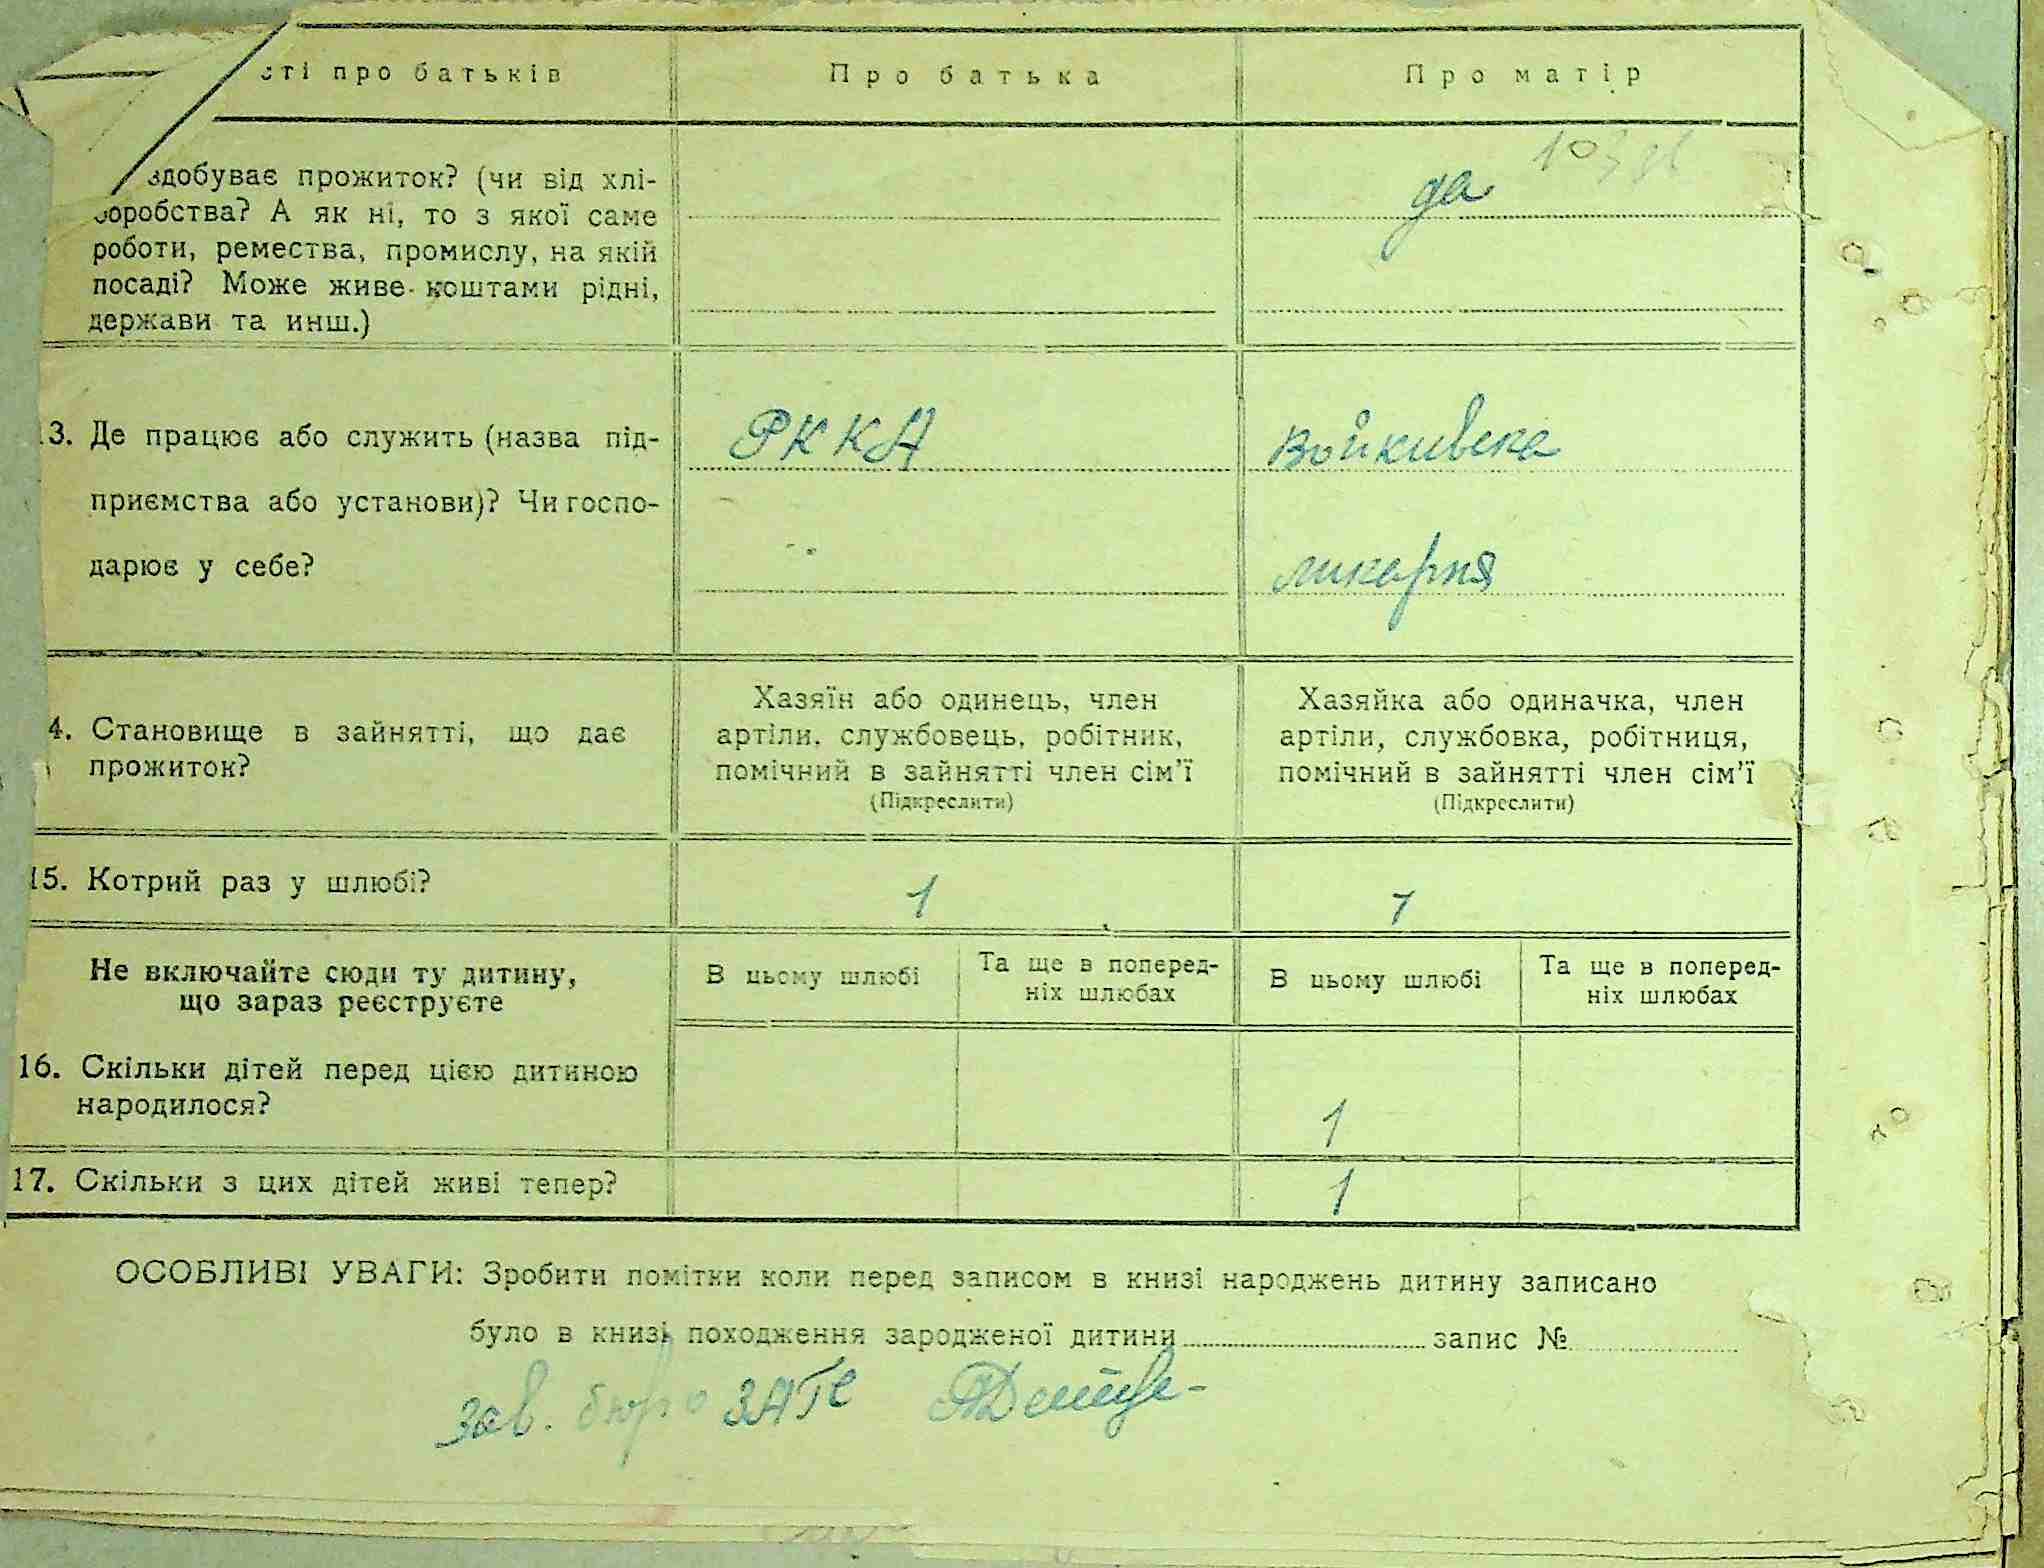 сті про батьків Про батька Про матір
здобуває прожиток? (чи від хлі-
боробства? А як ні, то з якої саме
роботи, ремества, промислу, на якій
посаді? Може живе коштами рідні,
держави та инш.)
да
13. Де працює або служить (назва під-
приємства або установи)? Чи госпо-
дарює у себе?
РККА
Войкивска
ликарня
4. Становище в зайнятті, що дає
прожиток?
Хазяїн або одинець, член
артіли, службовець, робітник,
помічний в зайнятті член сім'ї
(Підкреслити)
Хазяйка або одиначка, член
артіли, службовка, робітниця,
помічний в зайнятті член сім'ї
(Підкреслити)
15. Котрий раз у шлюбі? 1 1
Не включайте сюди ту дитину,
що зараз реєструєте
В цьому шлюбі
Та ще в поперед-
ніх шлюбах
В цьому шлюбі
Та ще в поперед-
ніх шлюбах
16. Скільки дітей перед цією дитиною
народилося?
1
17. Скільки з цих дітей живі тепер? 1
ОСОБЛИВІ УВАГИ: Зробити помітки коли перед записом в книзі народжень дитину записано
було в книзі походження зародженої дитини запис №
Зав. бюро ЗАГС